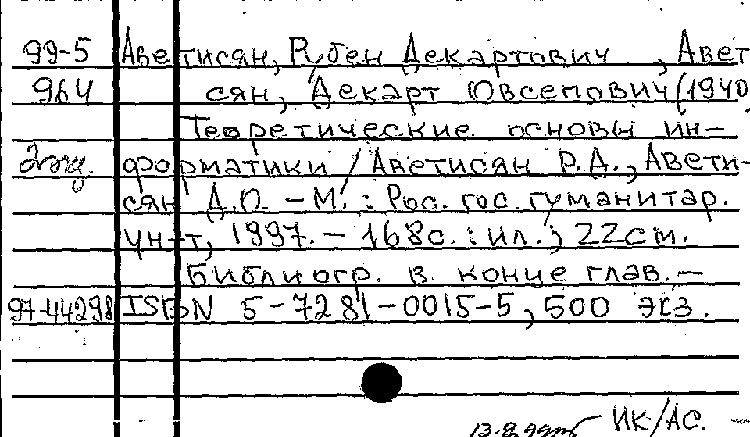 99-5 Аветисян, Рубен Декартович, Авет
964 сян, Декарт Овсепович (1940
Теоретические основы ин-
форматики / Аветисян Р.Д., Авети-
сян Д.О. - М.: Рос. гос. гуманитар.
ун-т, 1997. - 168с.: ил.; 22см.
Библиогр. в конце глав. -
97-44298 ISBN 5-7281-0015-5, 500 экз.
ИК/АС.